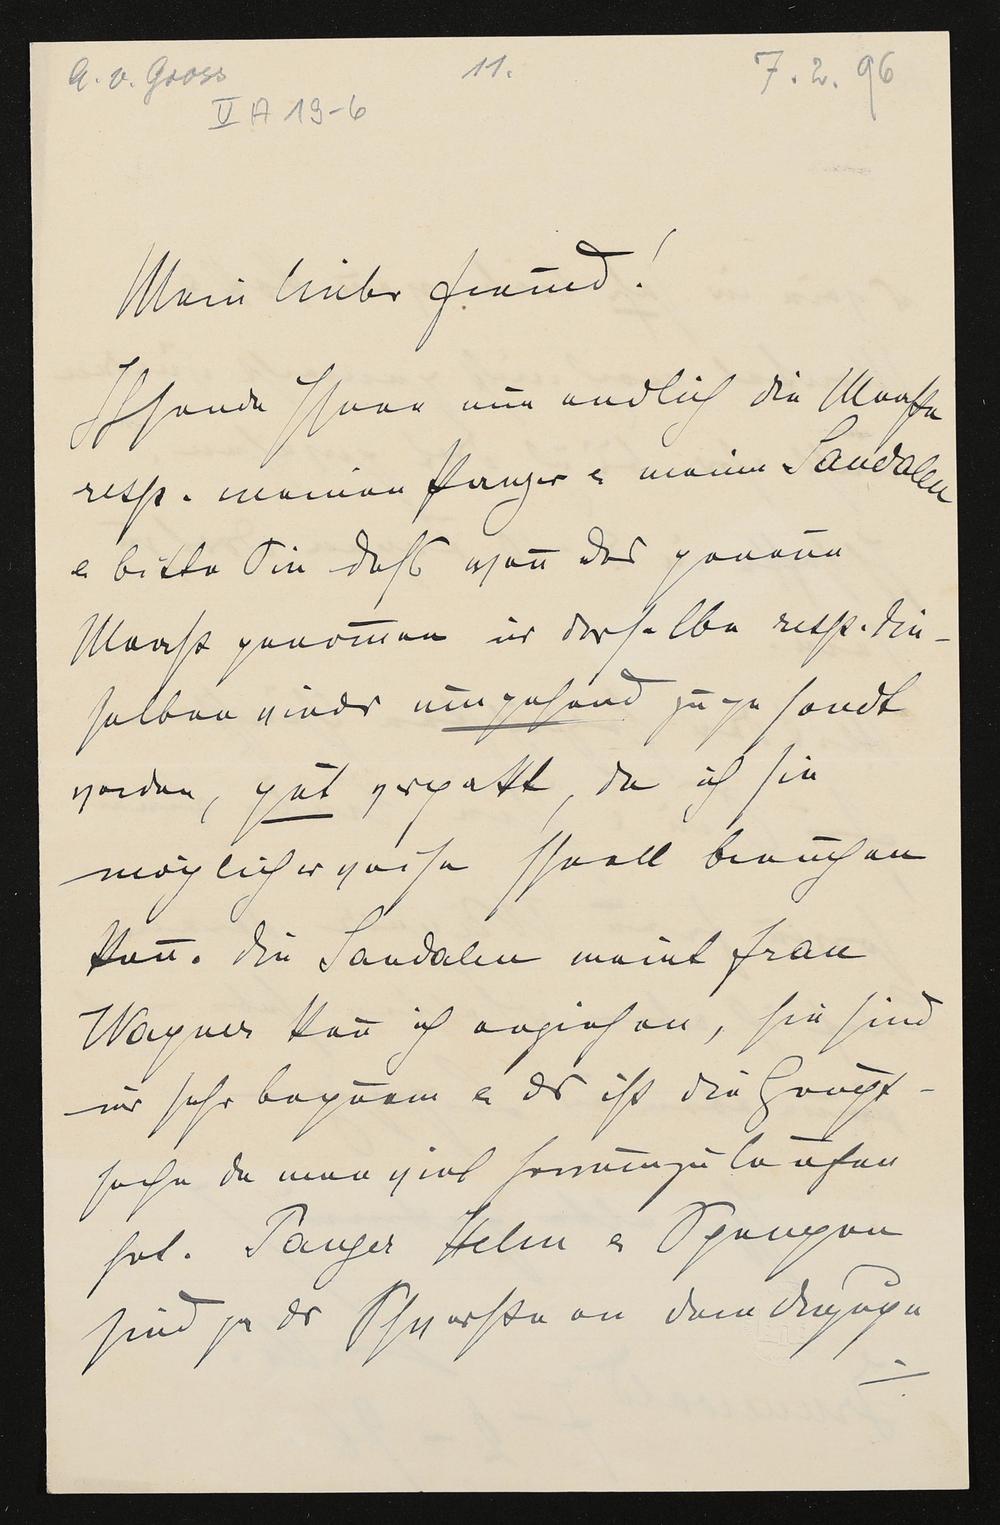 A. v. Gross 11. 7. 2. 96
V A 19-6
Mein lieber Freund!
Ich sende Ihnen nun endlich die Maaße
resp. meinen Panzer & meine Sandalen
& bitte Sie daß wenn das genaue
Maaß genommen mir derselbe resp. die-
selben wieder umgehend zugesandt
werden, gut verpackt, da ich sie
möglicherweise schnell brauchen
kann. Die Sandalen meint Frau
Wagner kann ich anziehen, sie sind
mir sehr bequem & das ist die Haupt-
sache da man viel herumzulaufen
hat. Panzer Helm & Spangen
sind ja das Schwerste an dem Anzuge